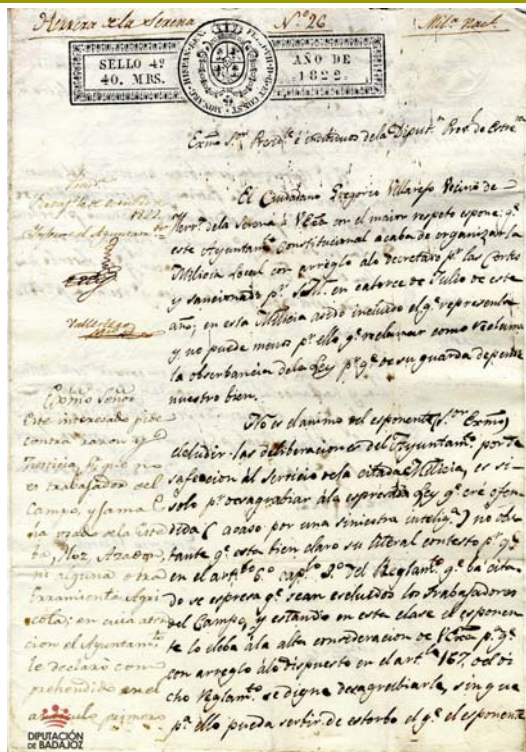 Herrera de la Serena Nº 26 Mila. Nacl.
SELLO 4º
40. MRS.
AÑO DE
1822.
Exmo Sor. Presidte. é individuos de la Diputn. Prov. de Estrema
El Ciudadano Gregorio Villarejo Vecino de
Herra. dela Serena á VExa. con el maior respeto espone: qe.
este Ayuntamto. Constitucional acaba de organizar la
Milicia Local con arreglo ala decretado pr. las Cortes
y sancionado pr. S.M. en catorce de Julio de este
año; en esta Milicia asido incluido el qe. representa
y no puede menos pr. ello qe. reclamar como reclama
la observancia dela Ley pr. qe. de su guarda depende
nuestro bien.
No es el animo del esponente (Sor. Exmo)
eludir las deliberaciones del Ayuntamto. por de
safeccion al Servicio dela citada Milicia, es sí
solo pr. desagrabiar ála espresada Ley qe. cré ofen
dida (acaso por una siniestra inteliga.) no obs
tante qe. esta bien claro su literal contesto pr. qe.
en el arto. 6º capo. 1º del Reglamto. qe. bá cita
do se espresa qe. sean escluidos los trabajadores
del Campo, y estando en esta clase el esponen
te lo eleba ála alta consideracion de VExa. pa. qe.
con arreglo álo dispuesto en el arto. 167. del di
cho Reglamto. se digne desagrabiarle, sin que
pa. ello pueda serbir de estorbo el qe. el esponente
Informe el Ayuntamto.
Exmo Señor
Este interesado pide
contra razon y
Justicia, pr. que no
es trabajador del
Campo, y jamas
ha usado dela
Hoz, Azadon,
ni niguna otra
Erramienta Agri
cola; en cuia aten
cion el Ayuntamto.
le declaró com
prehendido en el
articulo primero
DIPUTACIÓN
DE BADAJOZ